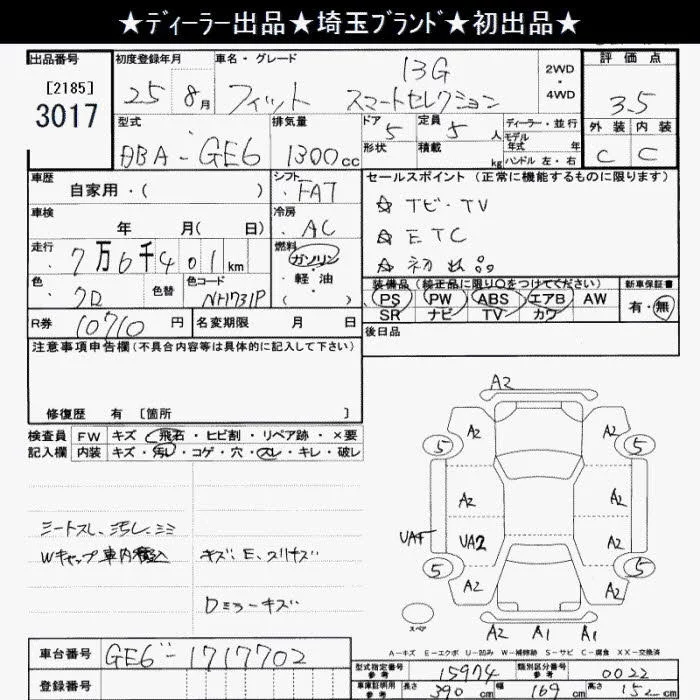 ★ディーラー出品★埼玉ブランド★初出品★
出品番号 初度登録年月 車名・グレード 13G 2WD・4WD 評価点
[2185]
3017 25 8月 フィット スマートセレクション 3.5
型式 排気量 ドア 5 定員 5人 ディーラー・並行 外装 内装
DBA-GE6 1300cc 形状 積載 kg モデル年式 年 ハンドル 左・右 C C
車歴 シフト FAT セールスポイント (正常に機能するものに限ります)
自家用・( ) 冷房 AC ☆ナビ・TV
車検 年 月( 日) ☆ETC
走行 7万6千401km 燃料 ガソリン・軽油・( ) ☆初出品
色 クロ 色替 色コード NH731P 装備品(純正品に限り○をつけてください) 新車保証書
PS PW ABS エアB AW 有・無
SR ナビ TV カワ
R券 10710円 名変期限 月 日 後日品
注意事項申告欄(不具合内容等は具体的に記入して下さい)
修復歴 有 [箇所 ]
検査員 FW キズ・飛石・ヒビ割・リペア跡・×要
記入欄 内装 キズ・汚レ・コゲ・穴・スレ・キレ・破レ
シートスレ、汚レ、シミ
Wキャップ車内積込 キズ、E、スリキズ
Dミラーキズ
A2
A2 A2
5 5
A2 A2
UAF UA2 A2
5 5
A2 A2
スペア
A2 A1 A1
A-キズ E-エクボ U-凹み W-補修跡 S-サビ C-腐食 XX-交換済
車台番号 GE6-1717702
登録番号
型式指定番号 参考 15974 類別区分番号 参考 0022
車庫証明用 参考 長さ 390cm 幅 169cm 高さ 152cm